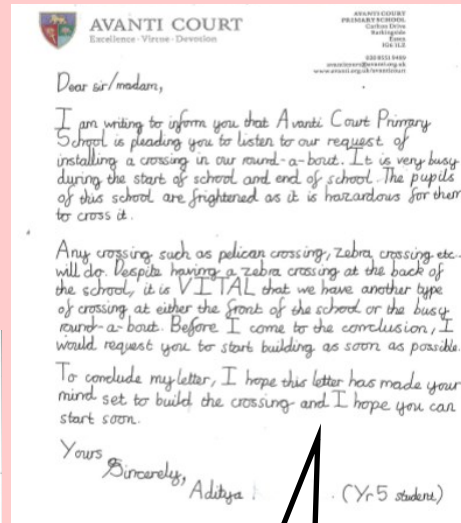 AVANTI COURT
Excellence · Virtue · Devotion
AVANTI COURT
PRIMARY SCHOOL
Carlton Drive
Barkingside
Essex
IG6 1LZ
Dear sir/madam,
I am writing to inform you that Avanti Court Primary
School is pleading you to listen to our request of
installing a crossing in our round-a-bout. It is very busy
during the start of school and end of school. The pupils
of this school are frightened as it is hazardous for them
to cross it.
Any crossing such as pelican crossing, zebra crossing etc..
will do. Despite having a zebra crossing at the back of
the school, it is VITAL that we have another type
of crossing at either the front of the school or the busy
round-a-bout. Before I come to the conclusion, I
would request you to start building as soon as possible.
To conclude my letter, I hope this letter has made your
mind set to build the crossing and I hope you can
start soon.
Yours
Sincerely,
Aditya . (Yr 5 student)